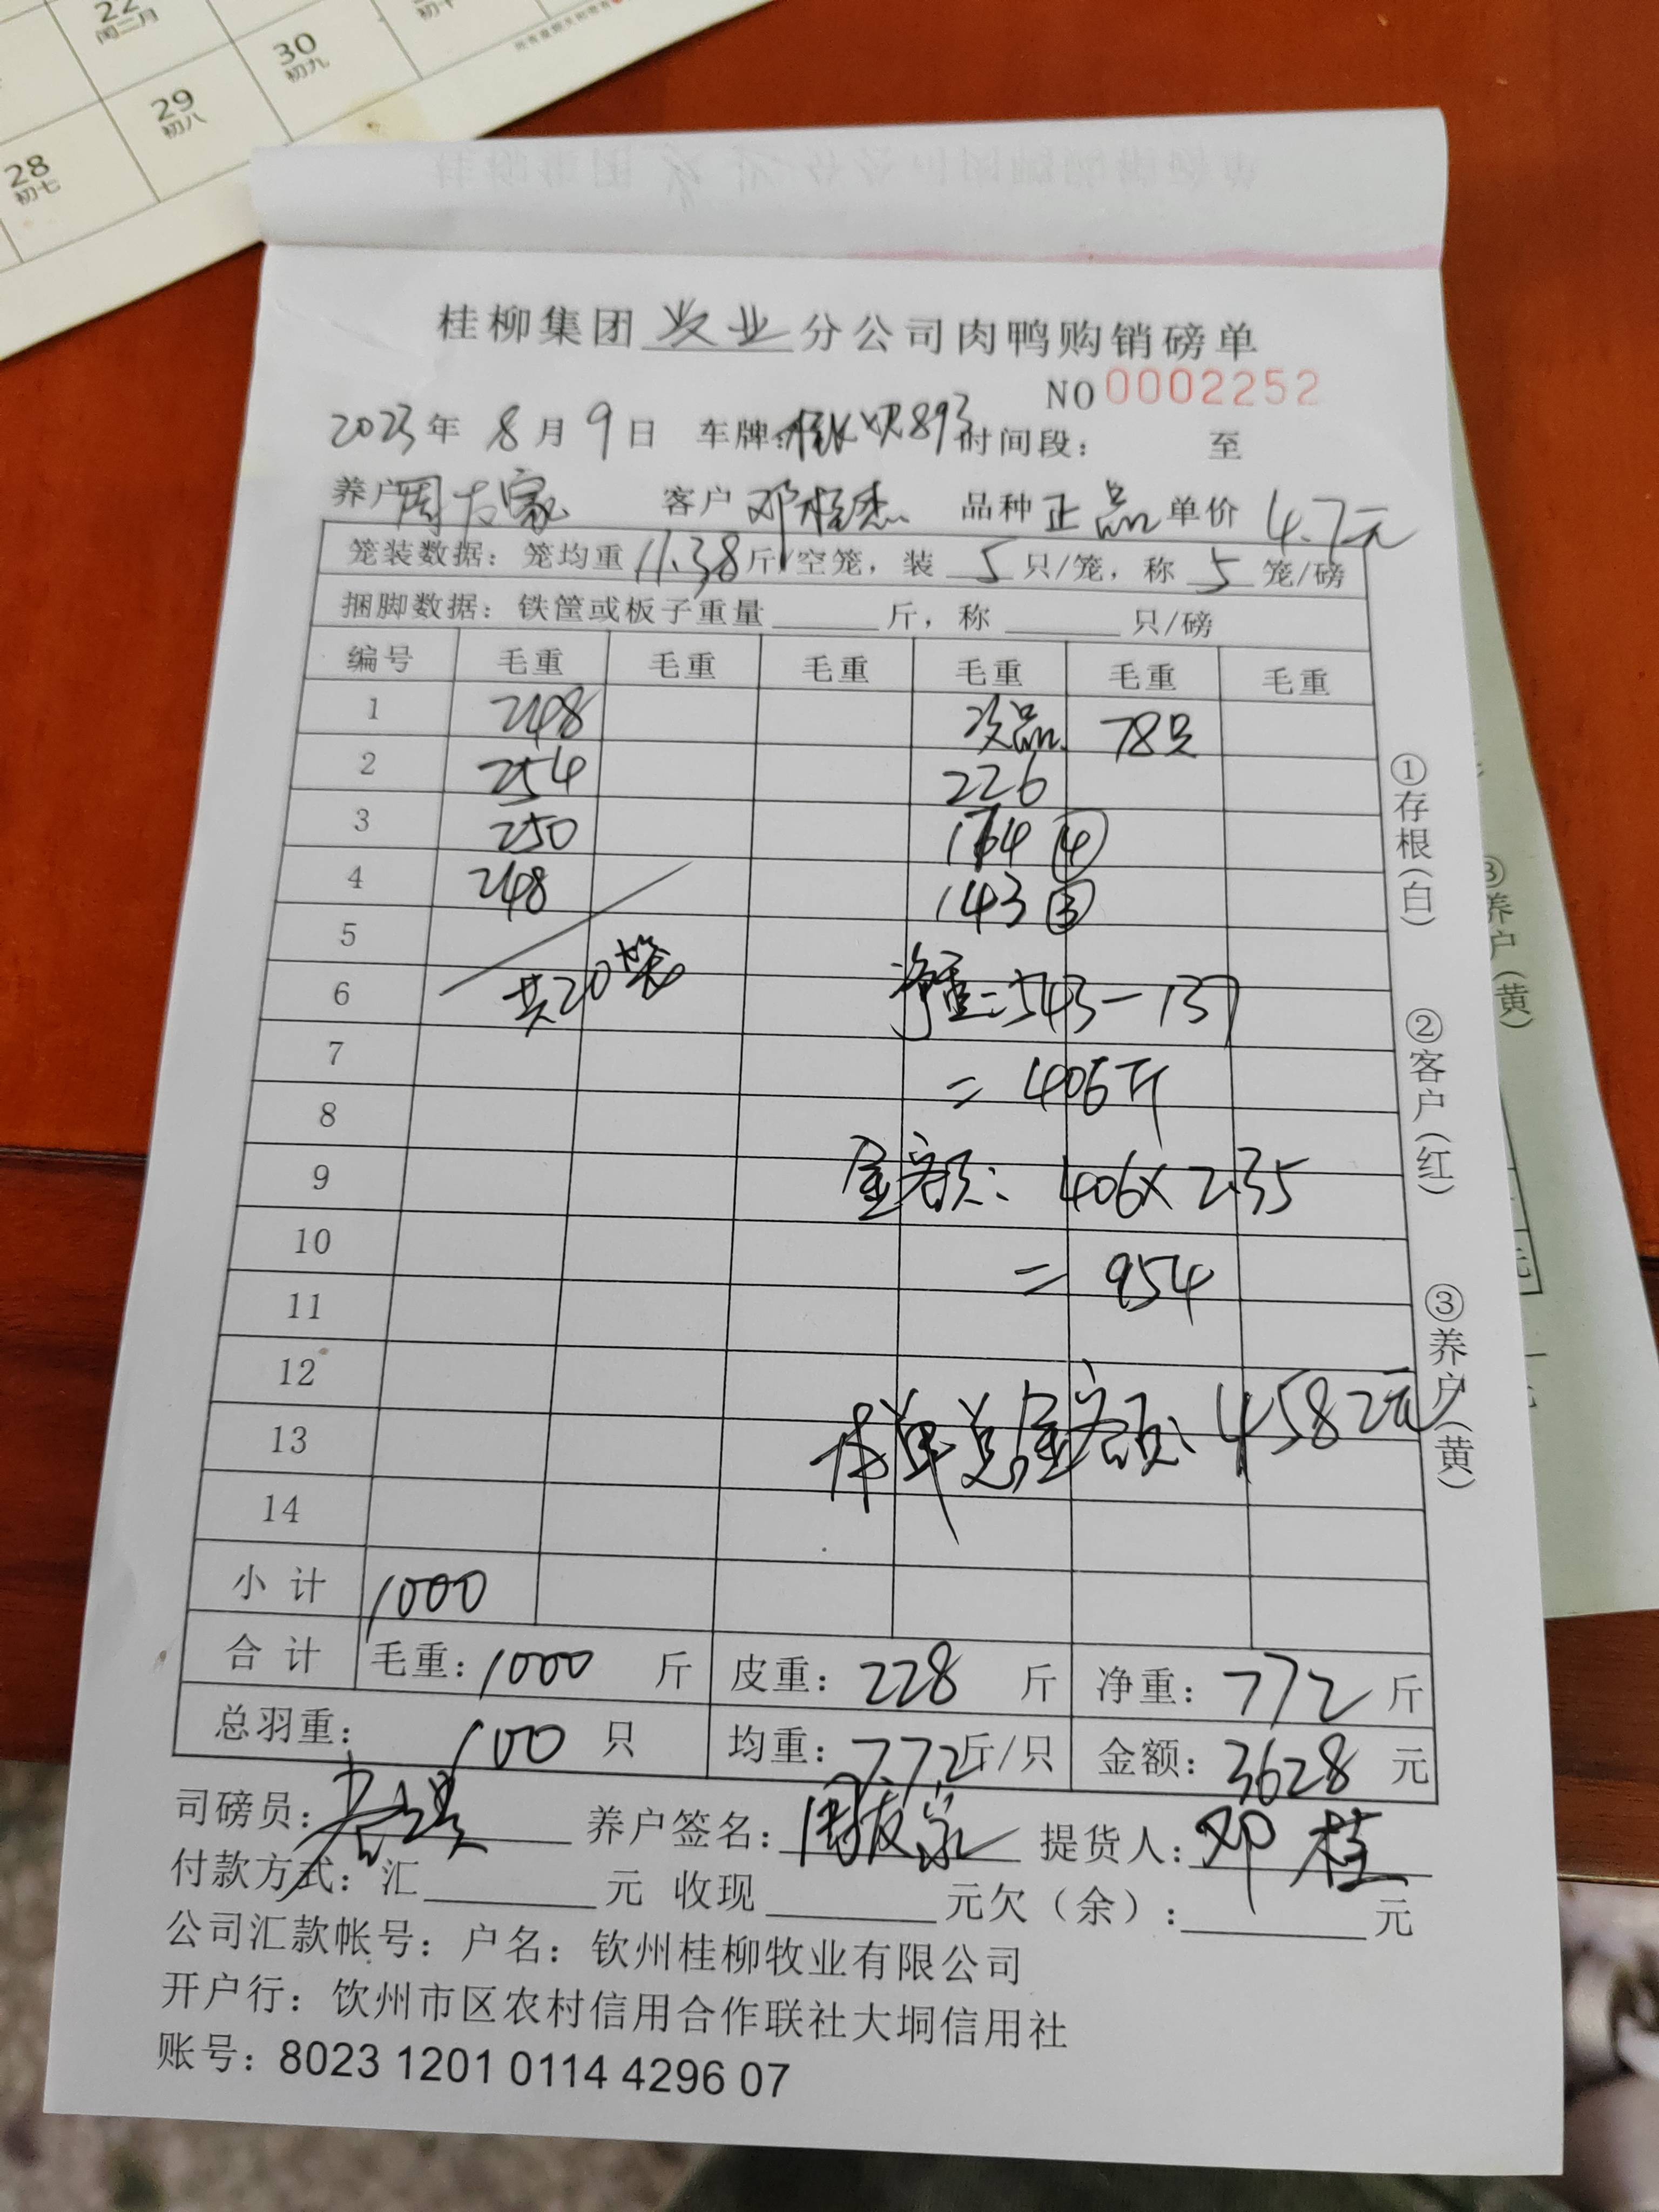 22
闰二月
初十
30
初九
29
初八
28
初七
桂柳集团 牧业 分公司肉鸭购销磅单
NO 0002252
2023年 8月 9日 车牌: 893 时间段: 至
养户 周友家 客户 邓桂杰 品种 正品 单价 4.7元
笼装数据: 笼均重 11.38 斤/空笼, 装 5 只/笼, 称 5 笼/磅
捆脚数据: 铁筐或板子重量 斤, 称 只/磅
编号 毛重 毛重 毛重 毛重 毛重 毛重
1 248 次品 78只
2 254 226
3 250 174 ④
4 248 143 ③
5
6 共20笼 净重=543-137
7 =406斤
8
9 金额: 406×2.35
10 =954
11
12
13 本单总金额: 4582元
14
小计 1000
合计 毛重: 1000 斤 皮重: 228 斤 净重: 772 斤
总羽重: 100 只 均重: 7.72 斤/只 金额: 3628 元
司磅员: 养户签名: 周友家 提货人: 邓桂
付款方式: 汇 元 收现 元欠(余): 元
公司汇款帐号: 户名: 钦州桂柳牧业有限公司
开户行: 钦州市区农村信用合作联社大垌信用社
账号: 8023 1201 0114 4296 07
①存根(白)
②客户(红)
③养户(黄)
③养户(黄)
元